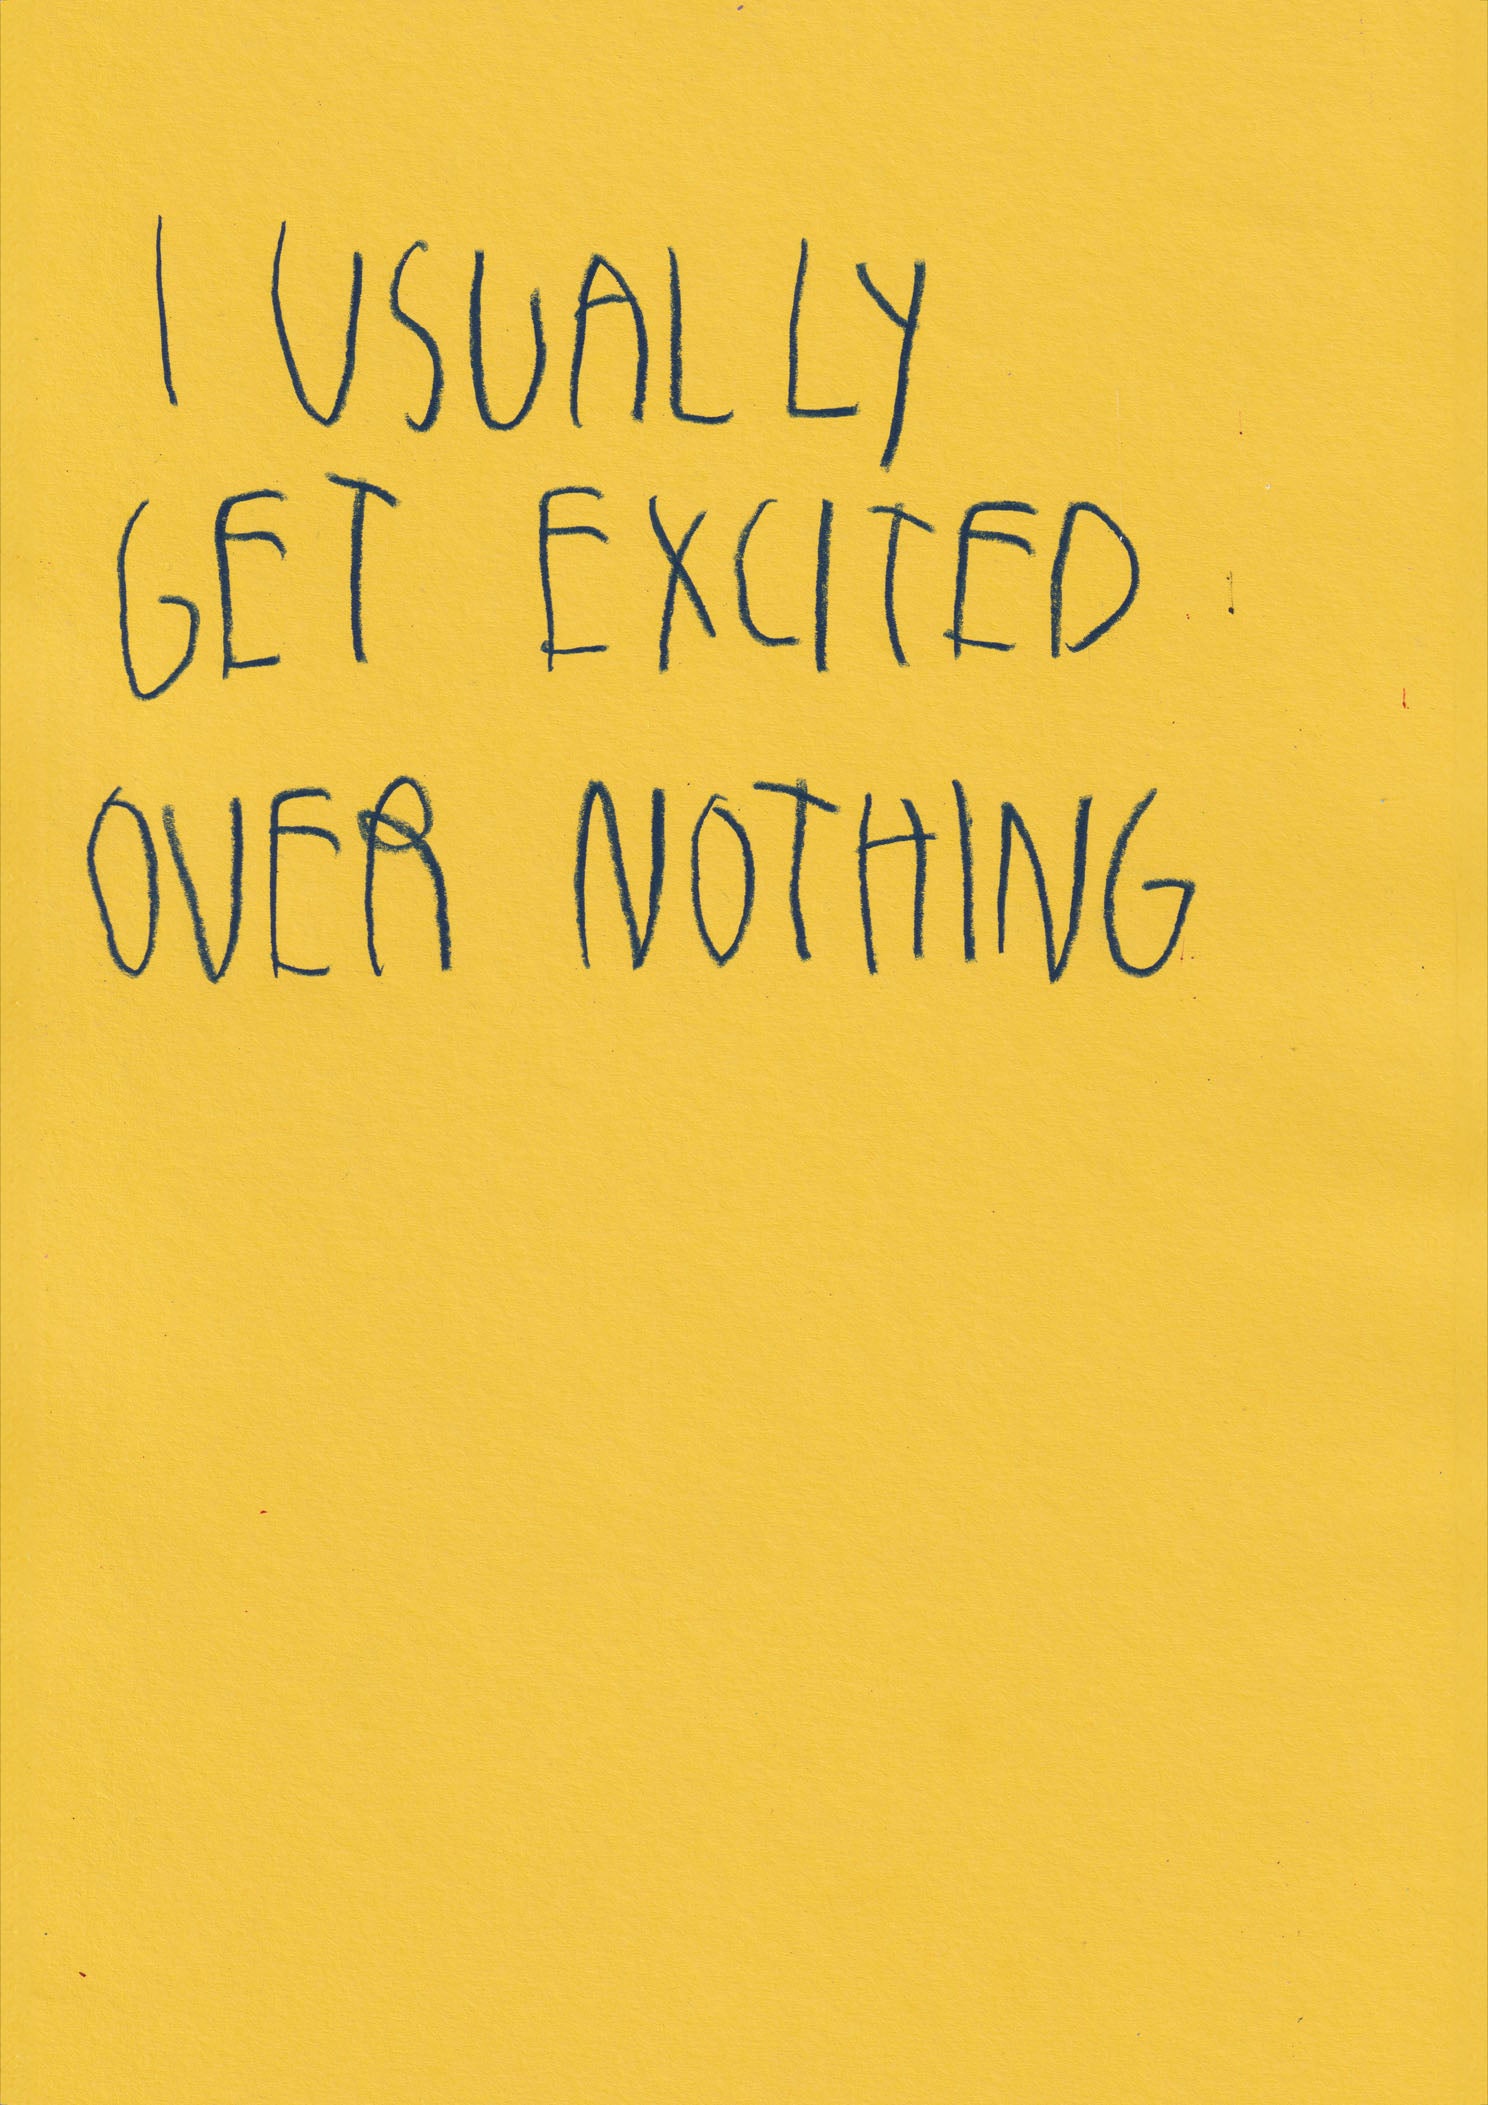 I USUALLY
GET EXCITED
OVER NOTHING